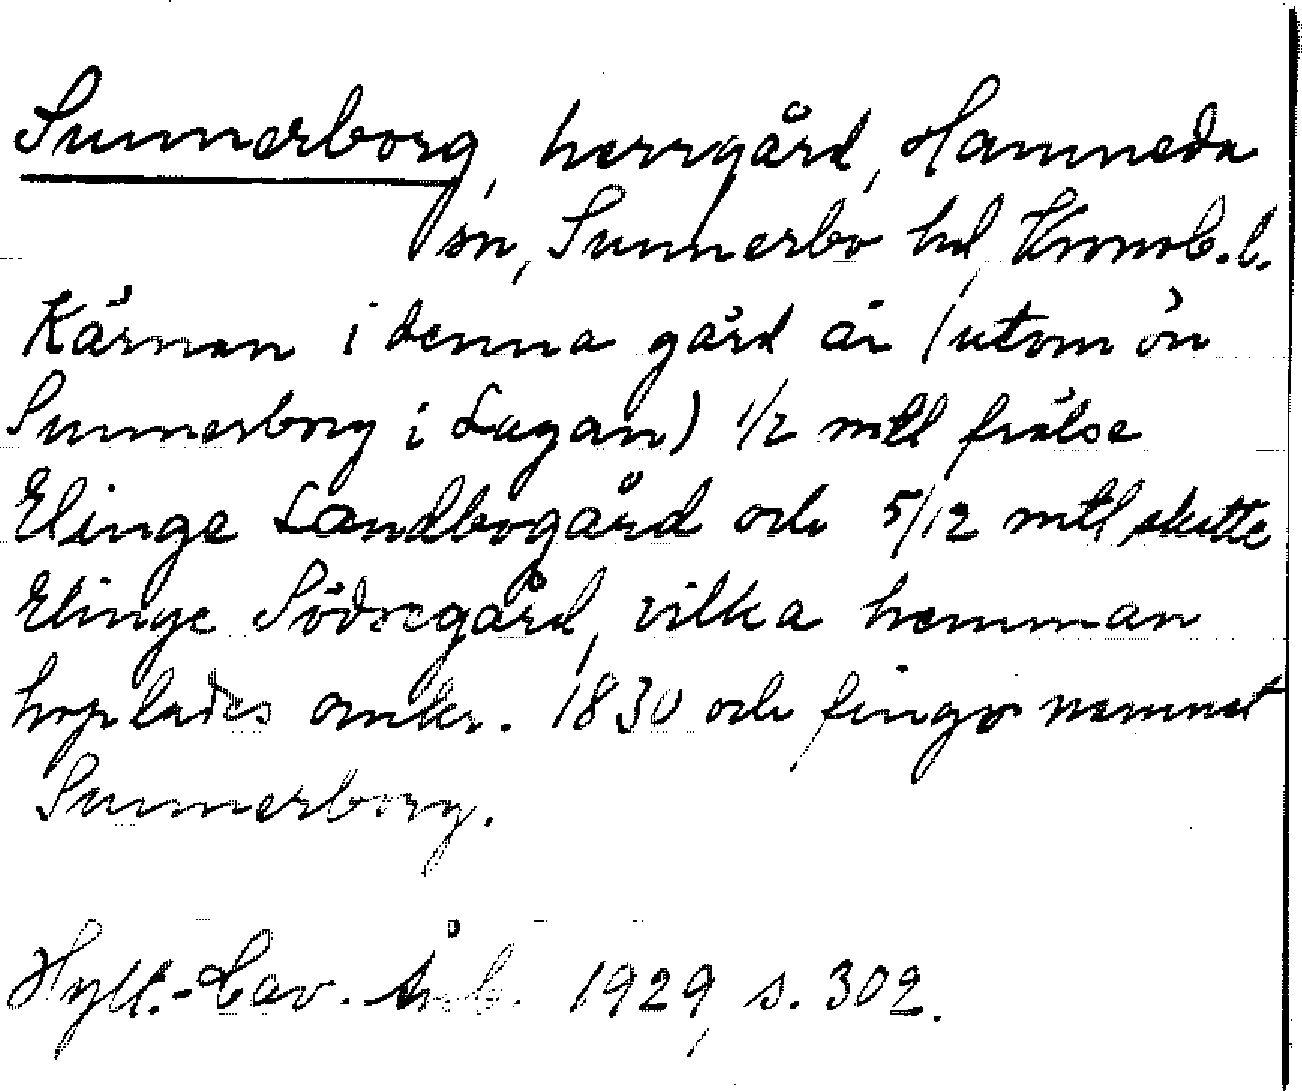 Sunnerborg, herrgård, Hamneda
sn, Sunnerbo hd, Kronob. l.
Kärnan i denna gård är (utom ön
Sunnerborg i Lagan) 1/2 mtl frälse
Elinge Landbogård och 5/12 mtl skatte
Elinge Södregård, vilka hemman
hoplades omkr. 1830 och fingo namnet
Sunnerborg.
Hylt.-Cav. Årsb. 1929, s. 302.